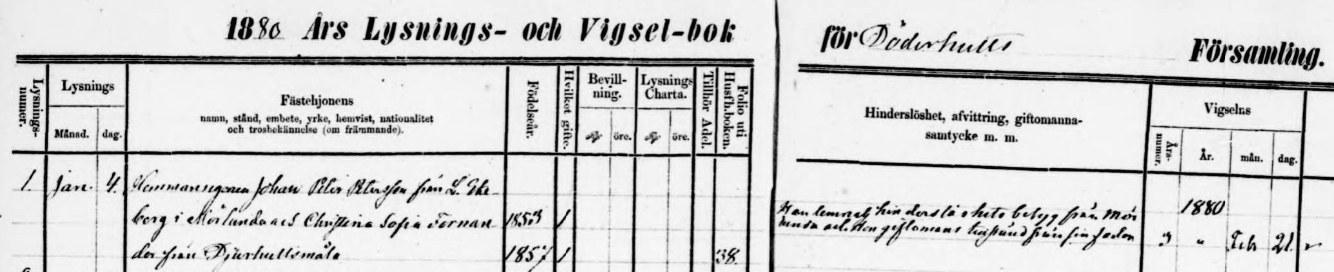 1880 Års Lysnings- och Vigsel-bok för Döderhults Församling.
Lysnings-numer.
Lysnings
Månad. dag.
Fästehjonens
namn, stånd, embete, yrke, hemvist, nationalitet
och trosbekännelse (om främmande).
Födelseår.
Hvilket gifte.
Bevill-
ning.
öre.
Lysnings
Charta.
öre.
Tillhör Adel.
Folio uti
Husfh.boken.
Hinderslöshet, afvittring, giftomanna-
samtycke m. m.
Vigselns
Års-
numer.
År. mån. dag.
1. Jan. 4. Hemmansegaren Johan Peter Petersson från L. Eke-
berg i Mörlunda och Christina Sofia Fornan- 1853 1
der från Djurhultsmåla 1857 1 38.
Han lemnat hinderslöshets betyg från Mör- 1880
lunda och Hon giftomans från sin fader 3 " Feb 21.